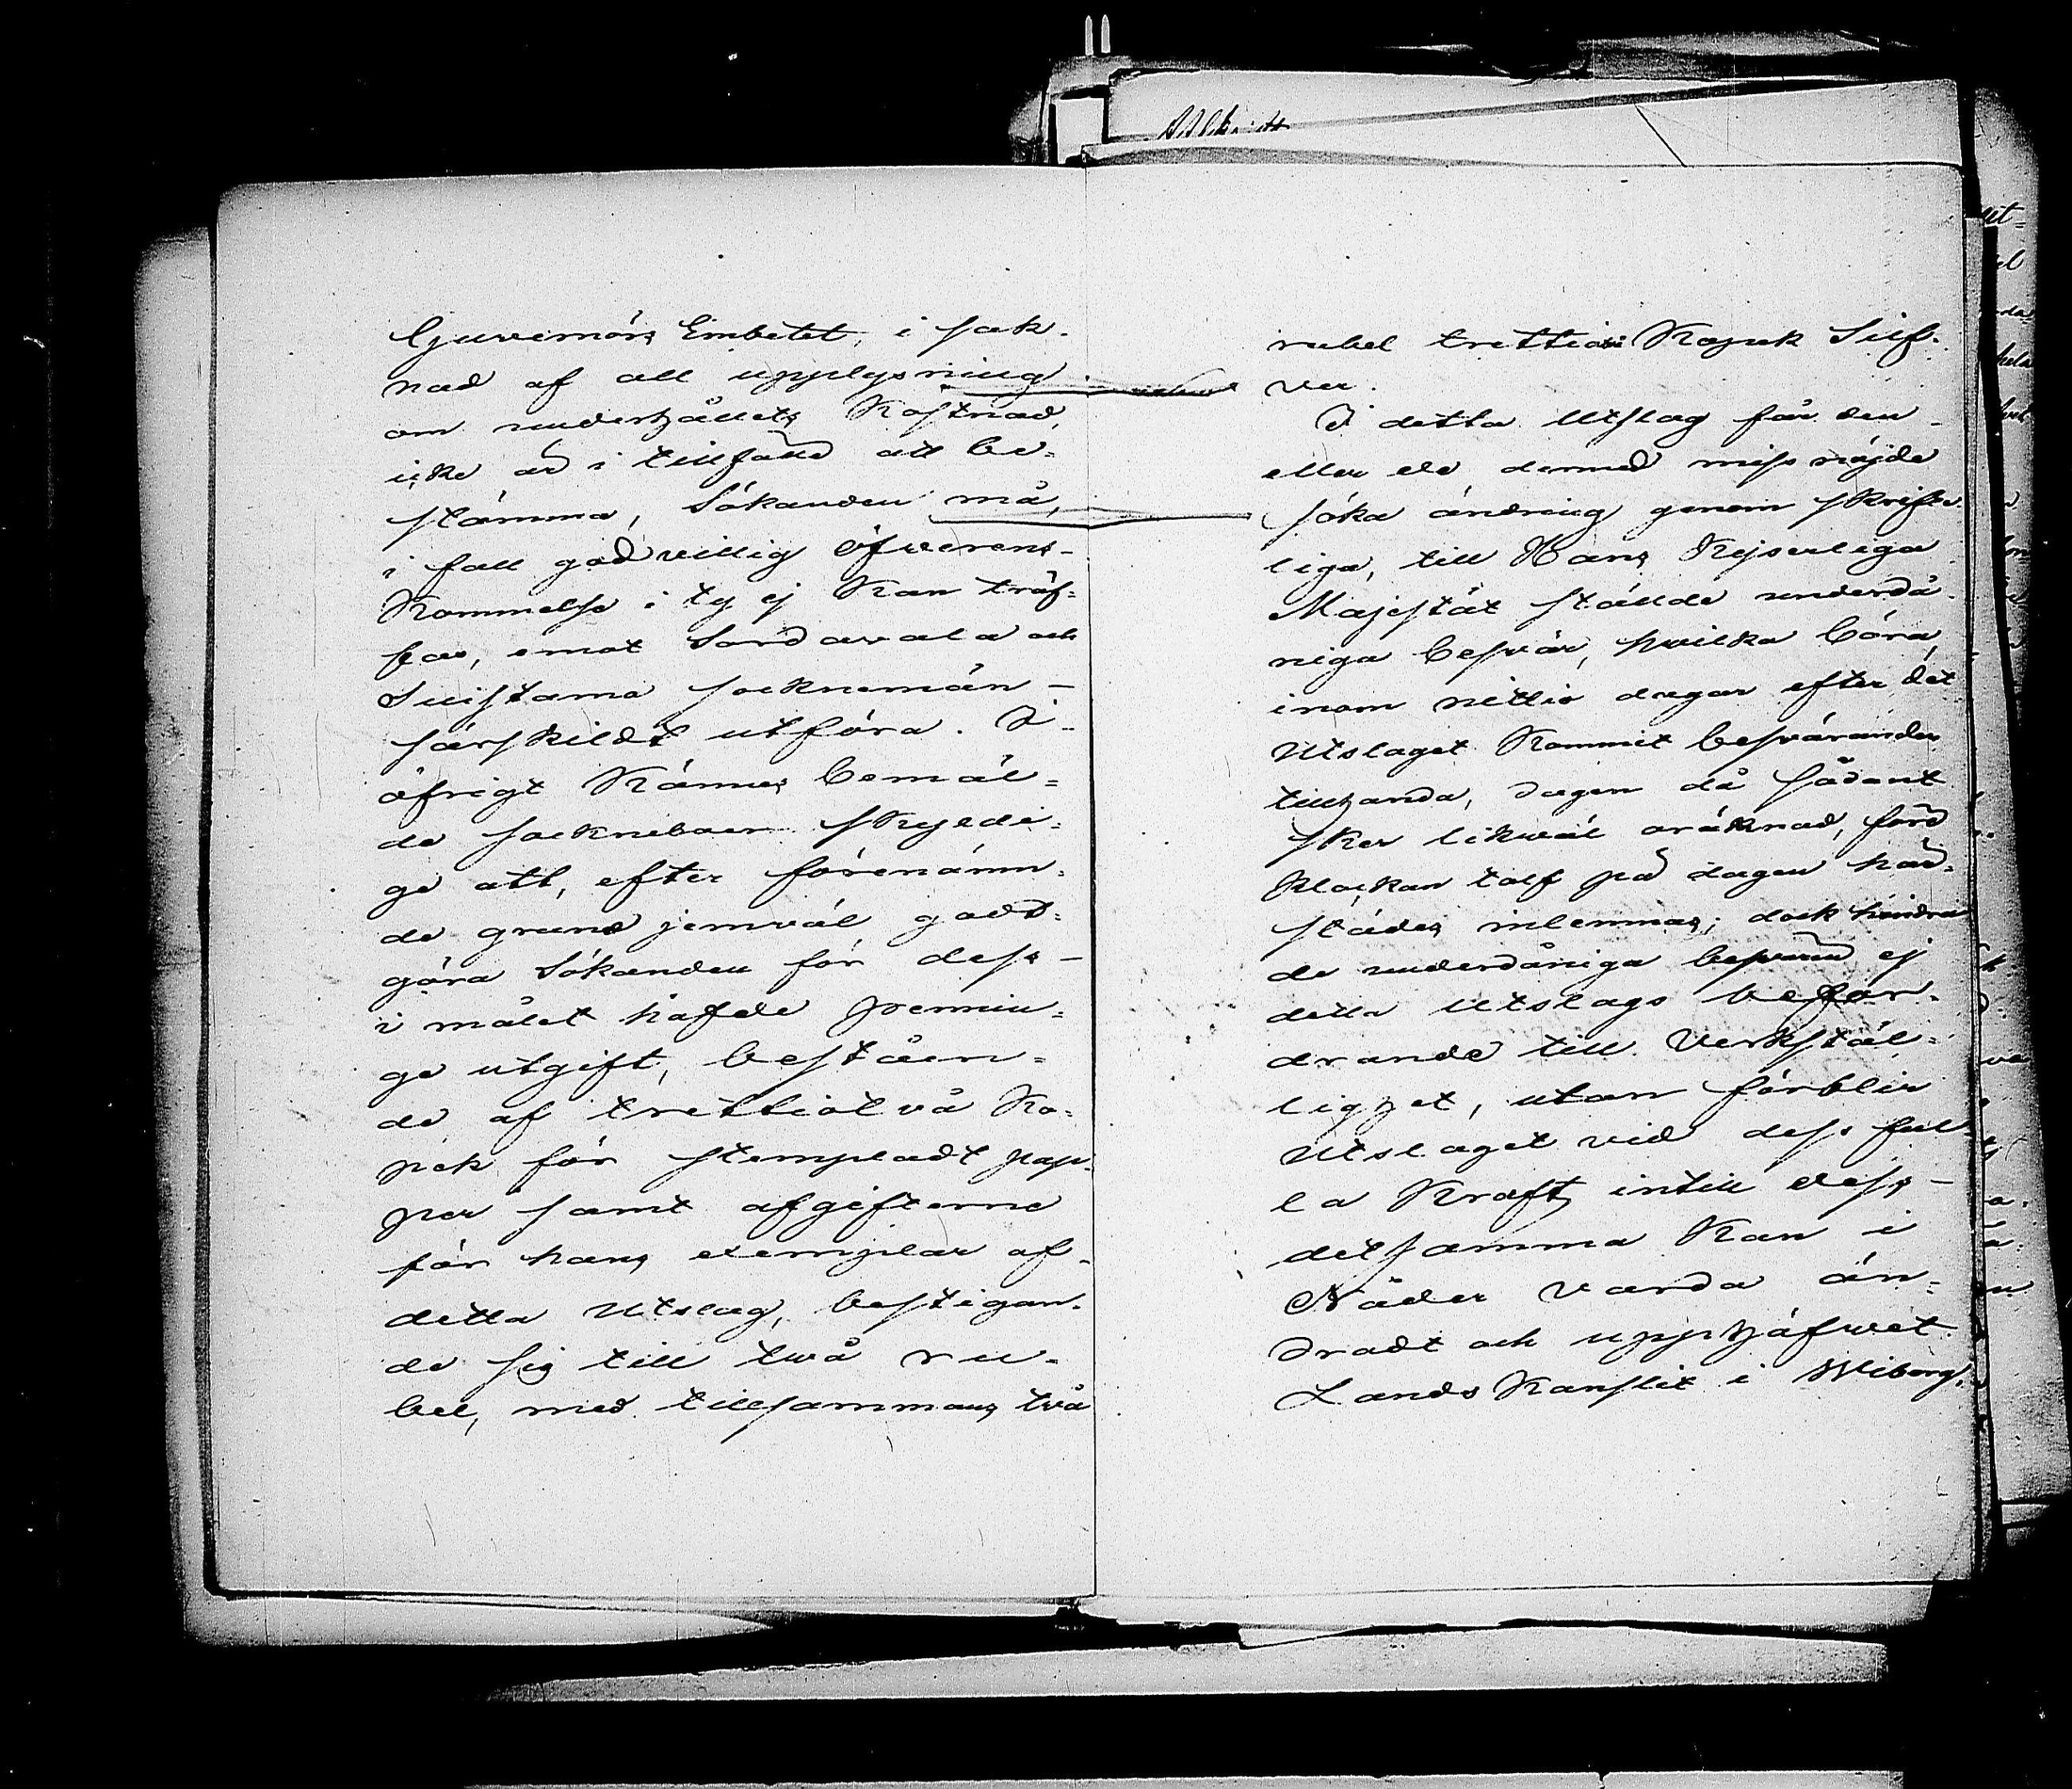 Guvernörs Embetet, i sak-
nad af all upplysning
om underhållets Kostnad,
icke är i tillfälle att be-
stämma, Sökanden må,
i fall godvillig öfverens-
Kommelse i ty ej Kan träf-
fas, emot Sordavala och
Suistamo sockneman -
särskildt utföra. I
öfrigt Kännes bemäl-
de sockneboer skyldi-
ge att, efter förenämn-
de grund jemväl godt-
göra Sökanden för dess -
i målet hafde pennin-
ge utgift, beståen-
de af trettiotvå Ko-
pek för stempladt pap-
per samt afgifterne
för hans exemplar af
detta Utslag, bestigan-
de sig till två ru-
bel, med tillsammans två
rubel trettiotvå Kopek Silf-
ver.
I detta Utslag får den
eller de dermed missnöjde
söka ändring genom skrift-
liga, till Hans Kejserliga
Majestät stälde underdå-
niga besvär, hvilka böra
inom nittio dagar efter det
Utslaget Kommit besväranden
tillhanda, dagen då sådant
sker likväl oräknad, före
Klockan tolf på dagen här-
städes inlemnas; dock hindra
de underdåniga besvären ej
detta Utslags befor-
drande till Verkstäl-
lighet, utan förblir
Utslaget vid dess ful-
la Kraft, intill dess -
detsamma Kan i
Nåder varda än-
dradt och upphäfvet.
Lands Kansliet i Wiborg,